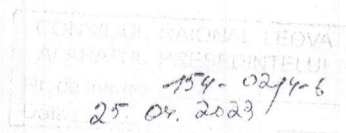 CONSILIUL RAIONAL LEOVA
APARATUL PREŞEDINTELUI
Nr. de 154-02/4-6
Data 25.04.2023